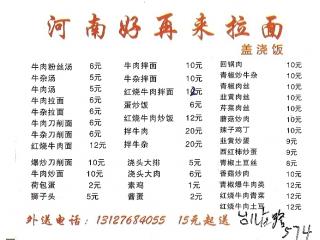 河南好再来拉面
盖浇饭
牛肉粉丝汤 6元 牛肉拌面 10元 回锅肉 10元
牛杂汤 5元 牛杂拌面 10元 青椒炒牛杂 10元
牛肉汤 5元 红烧牛肉拌面 12元 青椒肉丝 10元
牛肉拉面 6元 蛋炒饭 6元 韭黄肉丝 10元
牛杂拉面 6元 红烧牛肉炒饭 12元 芹菜肉丝 10元
牛肉刀削面 6元 拌牛肉 20元 蘑菇炒肉 10元
牛杂刀削面 6元 拌牛杂 20元 辣子鸡丁 10元
红烧牛肉面 12元 韭黄炒蛋 9元
西红柿炒蛋 9元
爆炒刀削面 10元 浇头大排 5元 青椒土豆丝 8元
牛肉炒面 10元 浇头大肉 6元 香菇炒肉 10元
荷包蛋 2元 素鸡 1元 青椒爆牛肉类 12元
狮子头 5元 酱蛋 2元 红烧牛肉笋 12元
红烧牛肉土豆 12元
外送电话：13127684055 15元起送
574